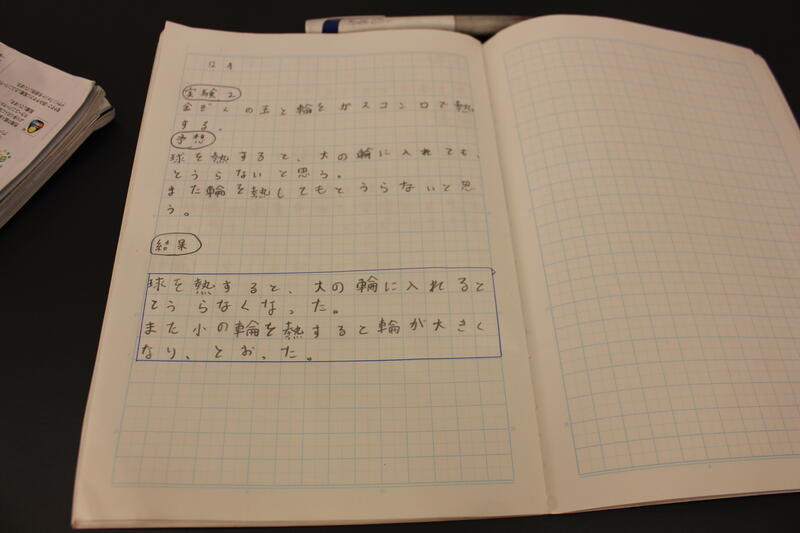 実験2
金ぞくの玉と輪をガスコンロで熱
する。
予想
球を熱すると、大の輪に入れても、
とうらないと思う。
また輪を熱してもとうらないと思
う。
結果
球を熱すると、大の輪に入れると
とうらなくなった。
また小の輪を熱すると輪が大きく
なり、とおった。